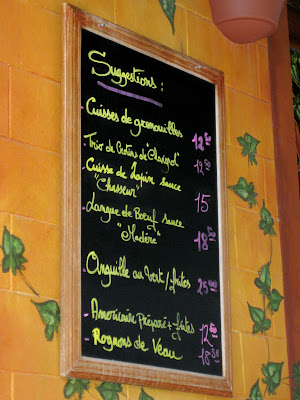 Suggestions:
- Cuisses de grenouilles 12 50
Trio de Crotins de "Chavignol" 12 50
- Cuisse de Lapin sauce
"Chasseur" 15
- Langue de Boeuf sauce
"Madère" 18 50
- Anguille au Vert/frites 25
- Americain Préparé + frites 12 50
Rognons de Veau 18 50